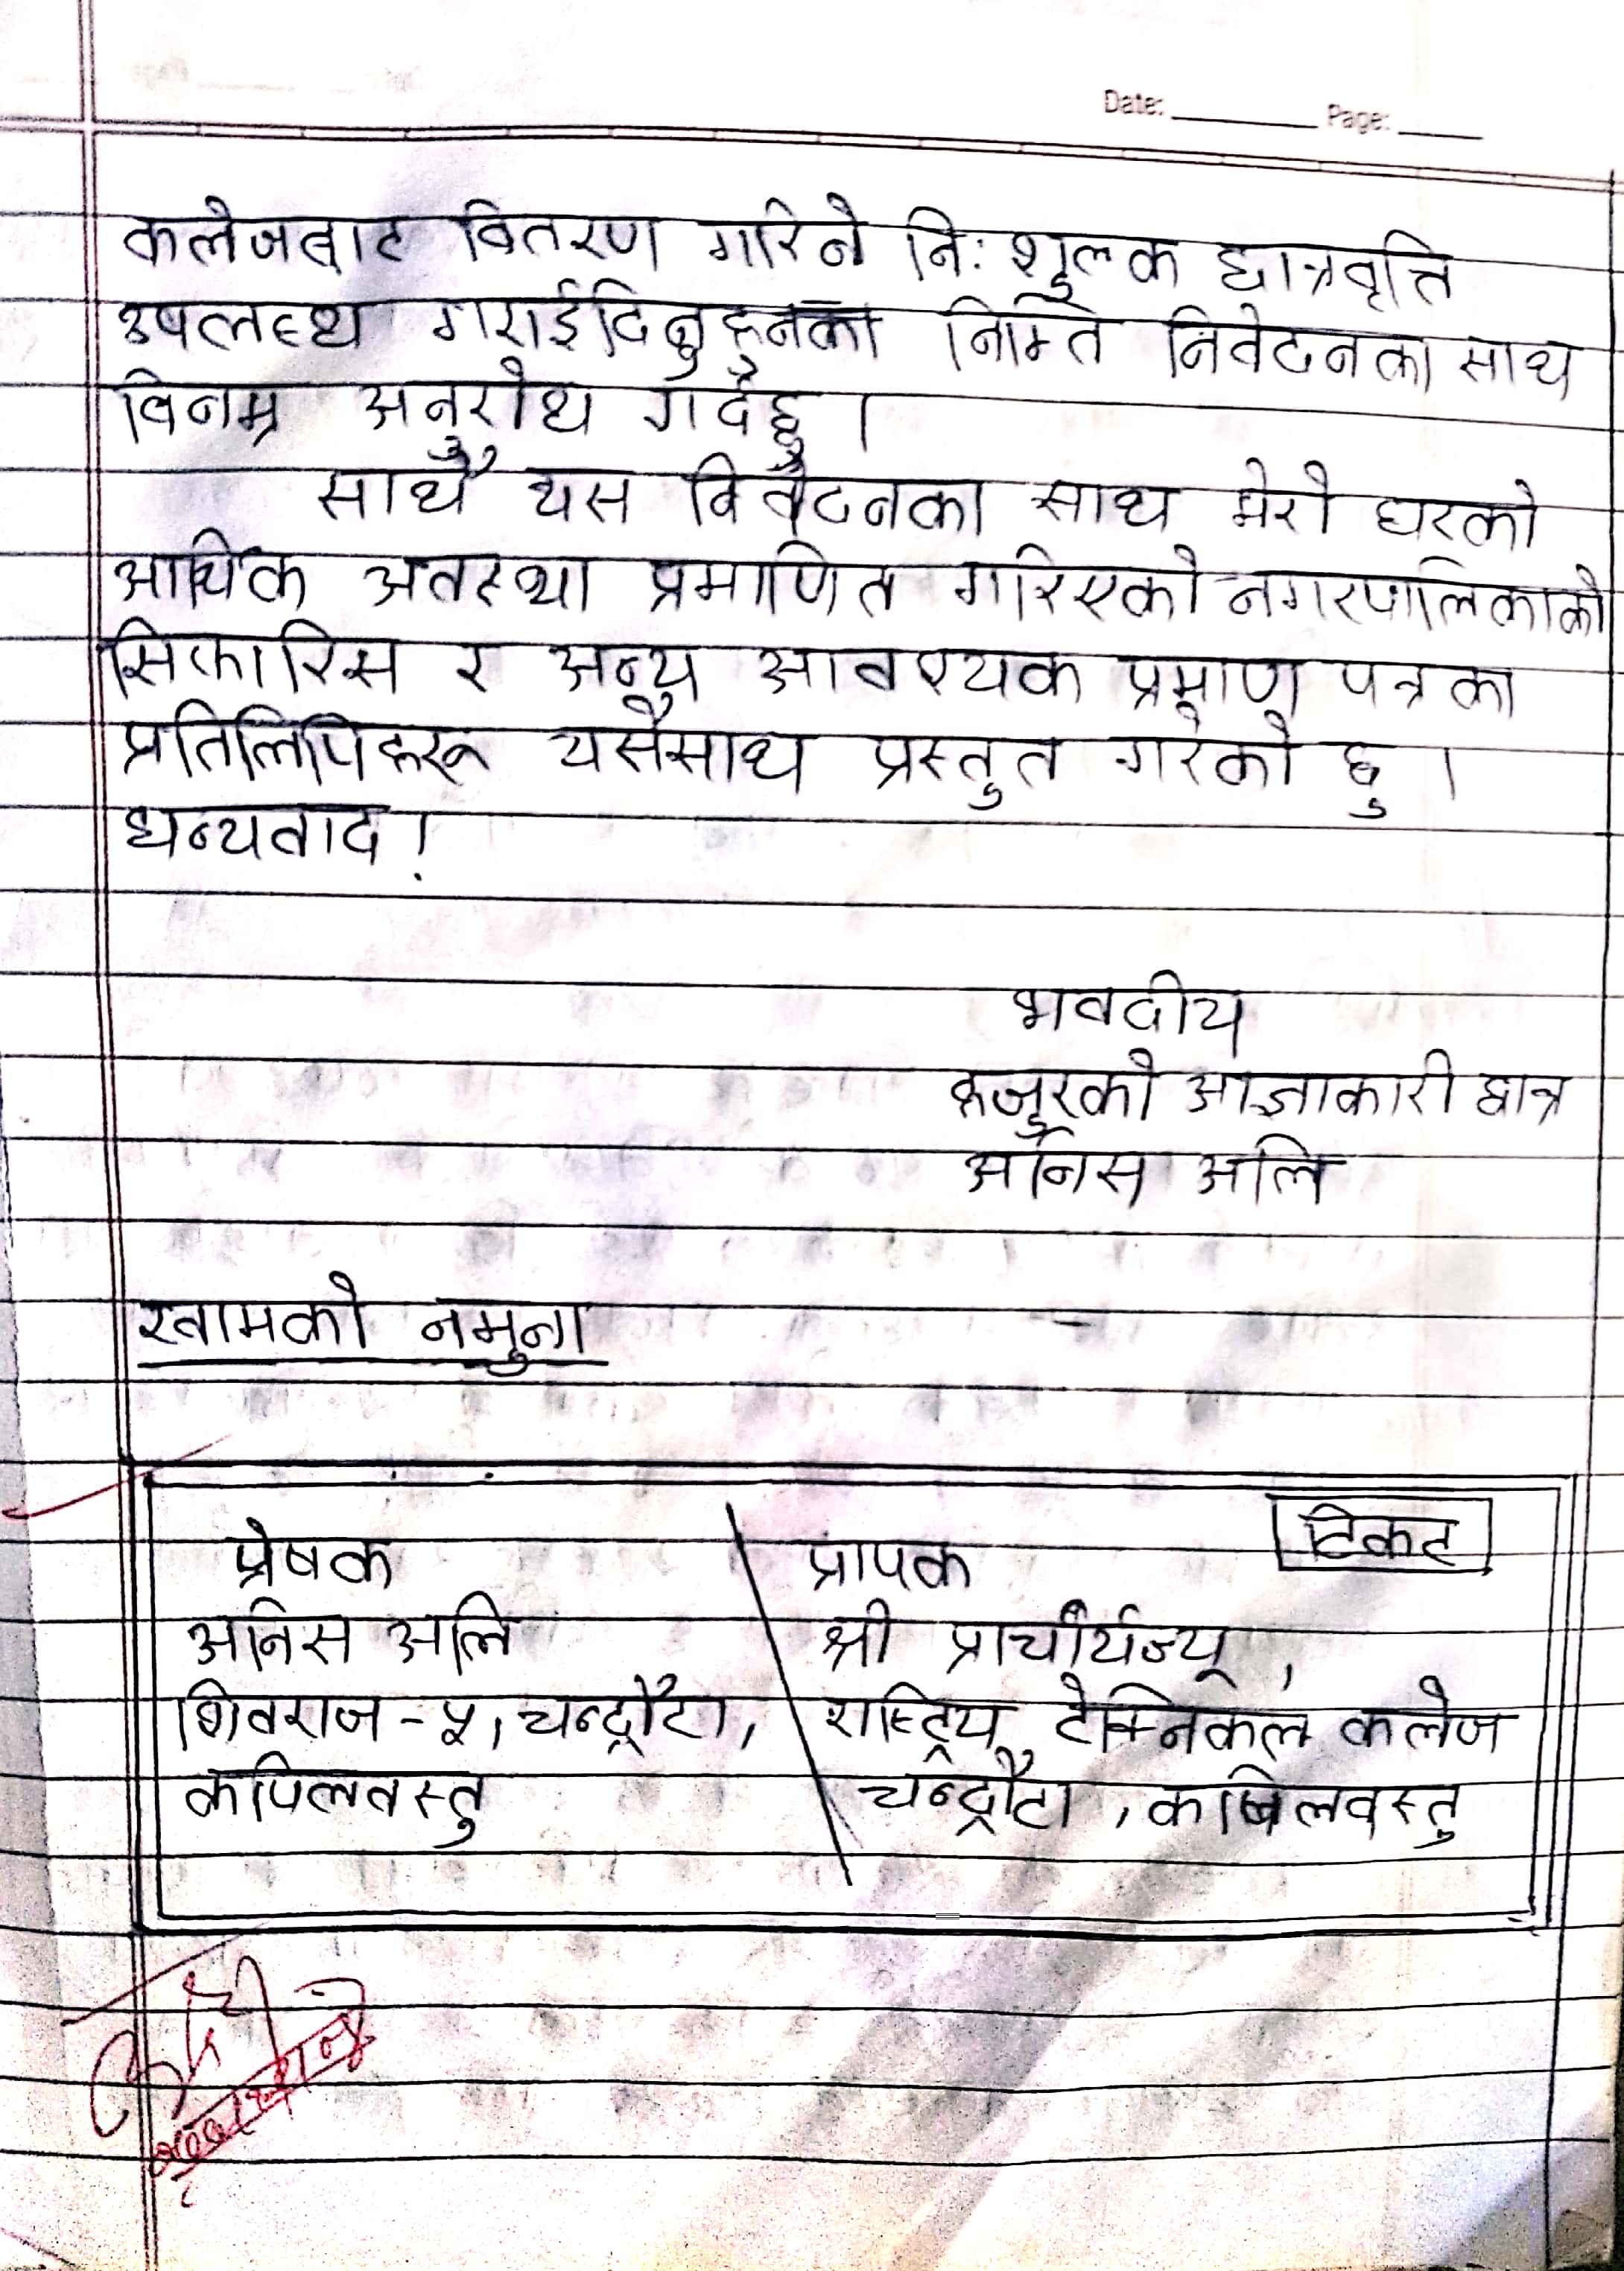 Date: ________ Page: ____
कलेजबाट वितरण गरिने नि: शुल्क छात्रवृत्ति
उपलब्ध गराईदिनुहुनका निम्ति निवेदनका साथ
विनम्र अनुरोध गर्दछु ।
साथै यस निवेदनका साथ मेरो घरको
आर्थिक अवस्था प्रमाणित गरिएको नगरपालिकाको
सिफारिस र अन्य आवश्यक प्रमाण पत्रका
प्रतिलिपिहरू यसैसाथ प्रस्तुत गरेको छु ।
धन्यवाद !
भवदीय
हजुरको आज्ञाकारी छात्र
अनिस अलि
खामको नमुना
टिकट
प्रेषक
अनिस अलि
शिवराज - ५, चन्द्रौटा,
कपिलवस्तु
प्रापक
श्री प्राचार्यज्यू,
राष्ट्रिय टेक्निकल कलेज
चन्द्रौटा, कपिलवस्तु